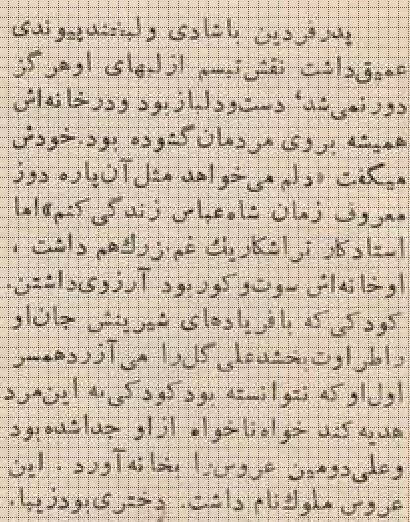 پدرفردین باشادی ولبخندپیوندی
عمیق‌داشت نقش‌تبسم ازلبهای اوهرگز
دورنمی‌شد، دست‌ودلبازبود ودرخانه‌اش
همیشه بروی مردمان‌گشوده بود.خودش
میگفت «دلم می‌خواهد مثل‌آن‌پاره دوز
معروف زمان شاه‌عباس زندگی‌کنم»اما
استادکار تراشکاریك غم‌بزرك‌هم داشت ،
اوخانه‌اش سوت‌وکوربود آرزوی‌داشتن.
کودکی‌که بافریادهای شیرینش جان‌او
راطراوت‌بخشدعلی‌گل‌را می‌آزردهمسر
اول‌اوکه نتوانسته بودکودکی‌به این‌مرد
هدیه‌کند خواه‌ناخواه ازاو جداشده‌بود
وعلی‌دومین عروس‌را بخانه‌آورد . این
عروس ملوك‌نام داشت. دختری‌بودزیبا.